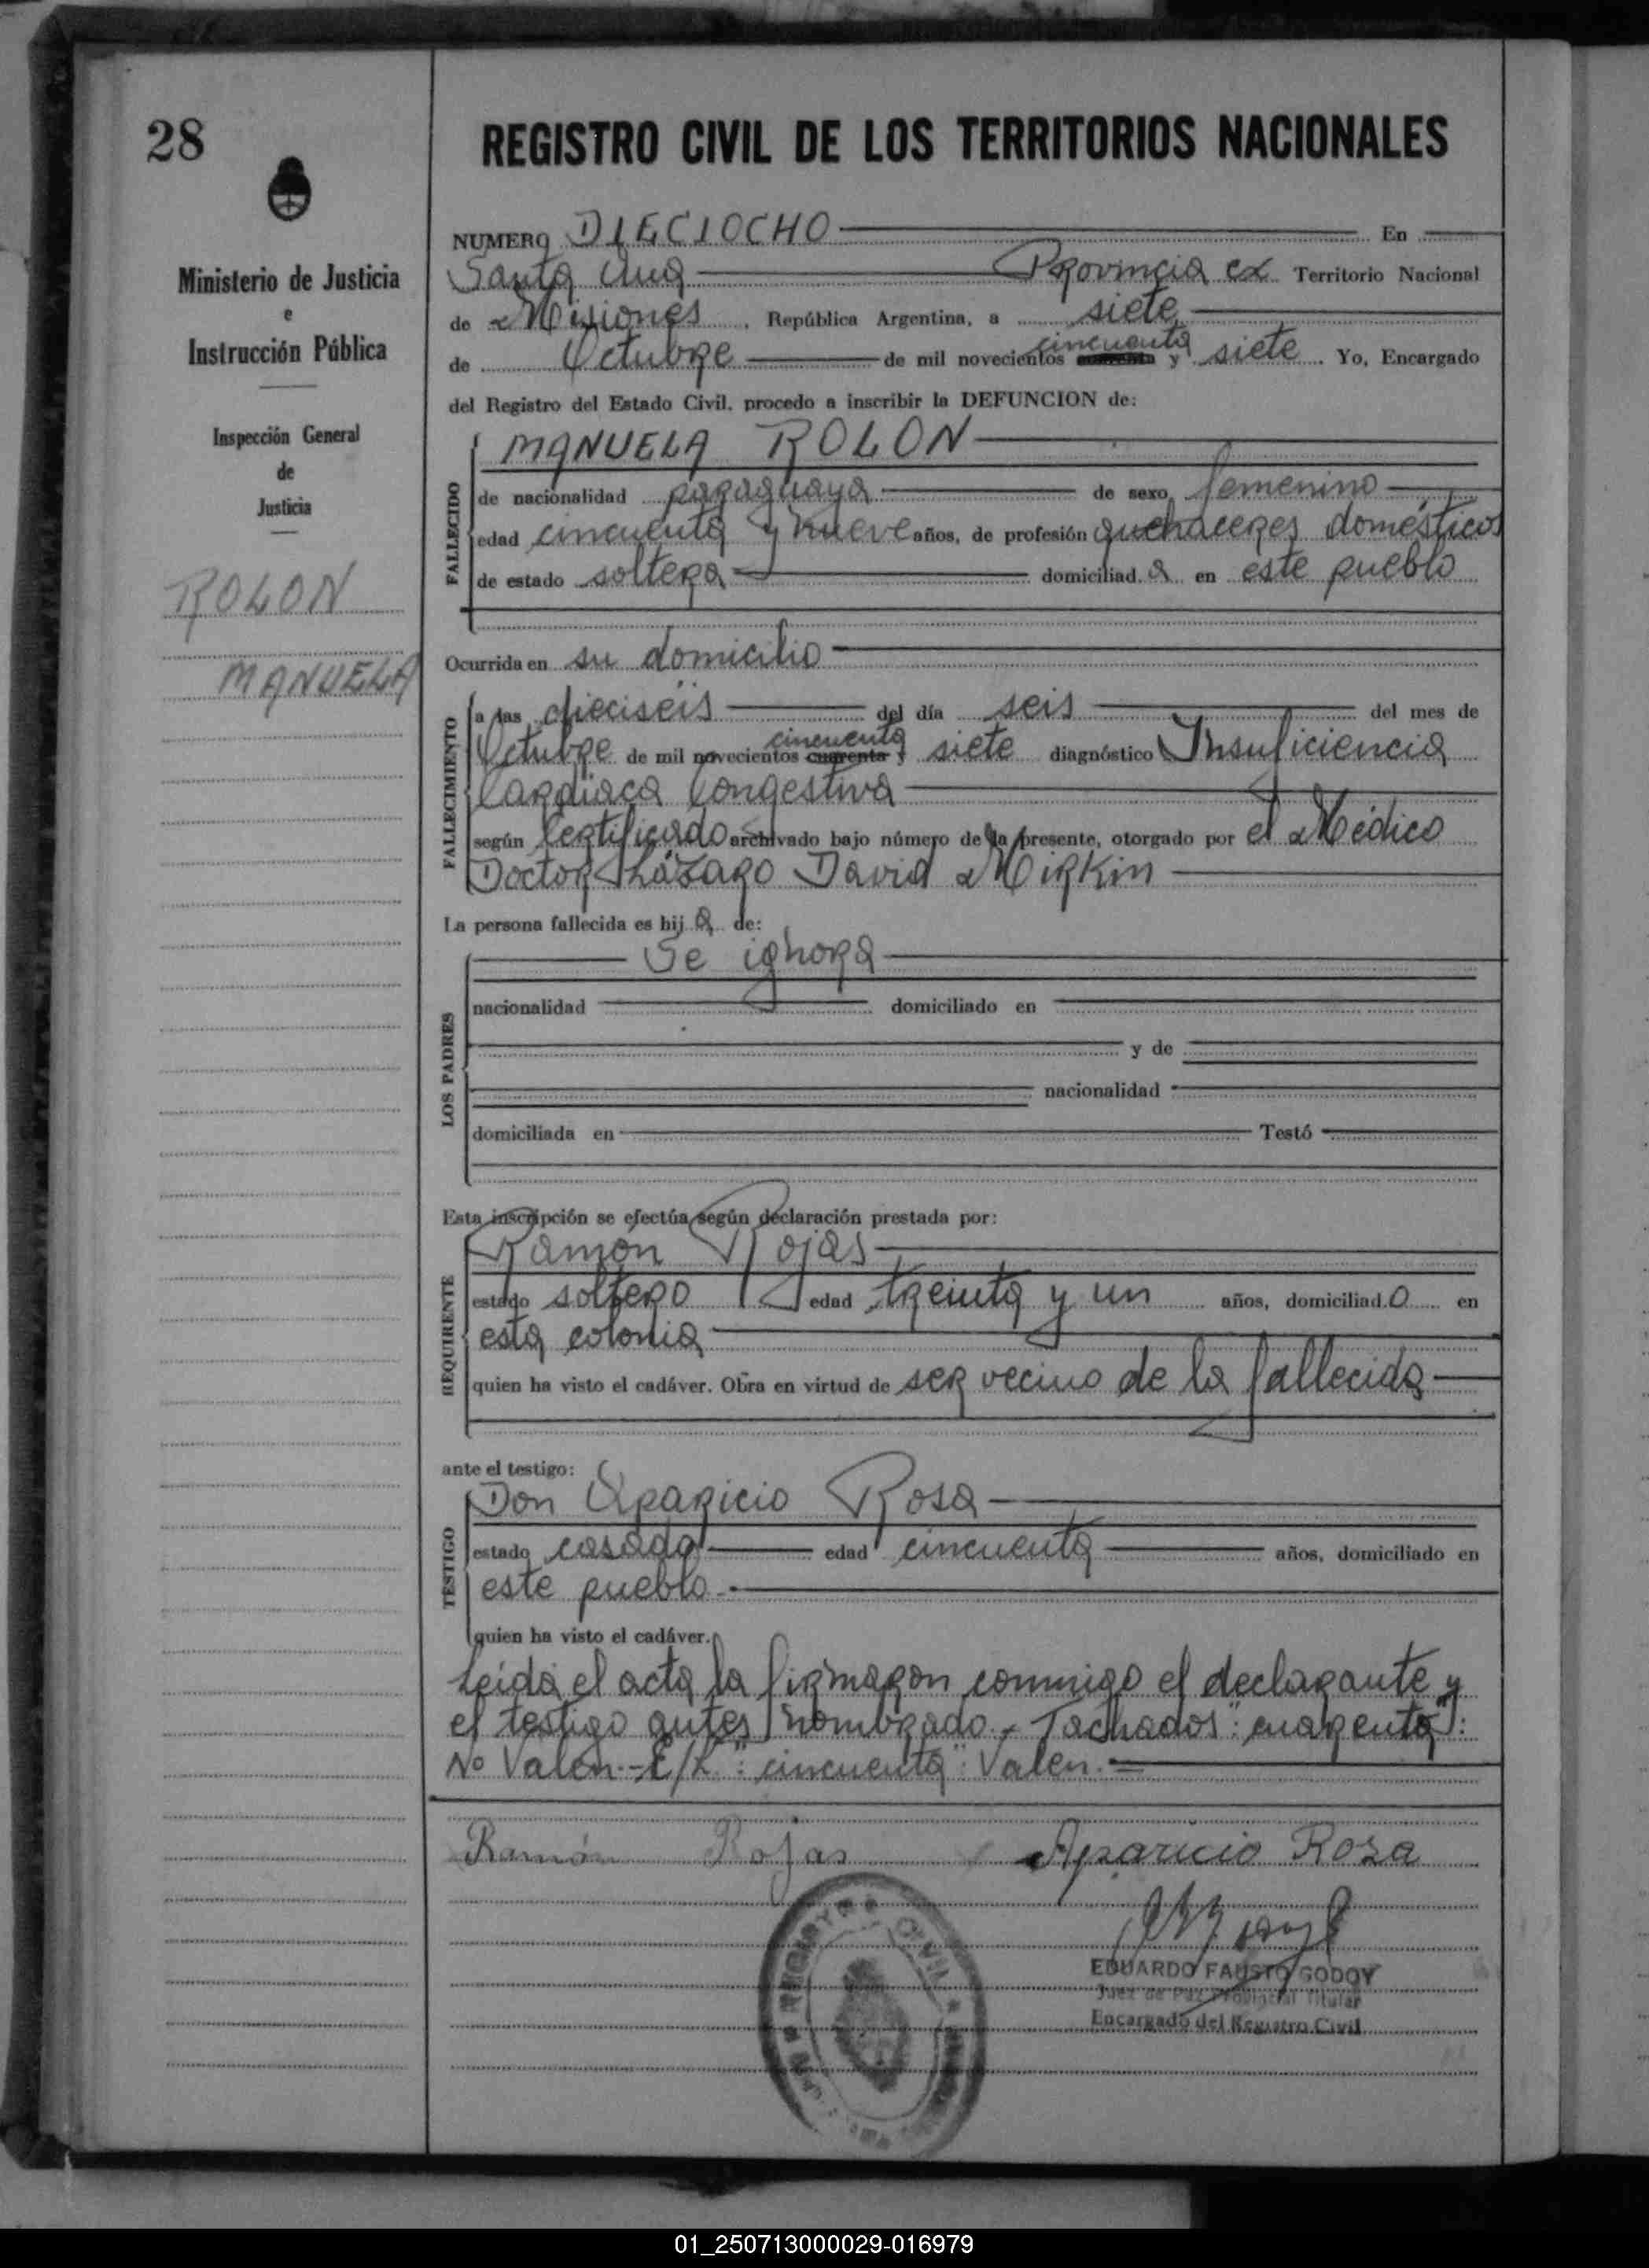 28
Ministerio de Justicia
e
Instrucción Pública
Inspección General
de
Justicia
ROLON
MANUELA
REGISTRO CIVIL DE LOS TERRITORIOS NACIONALES
NUMERO DIECIOCHO En
Santa Ana Provincia ex Territorio Nacional
de Misiones, República Argentina, a siete
de Octubre de mil novecientos cuarenta cincuenta y siete. Yo, Encargado
del Registro del Estado Civil, procedo a inscribir la DEFUNCION de:
FALLECIDO
MANUELA ROLON
de nacionalidad paraguaya de sexo femenino
edad cincuenta y nueve años, de profesión quehaceres domésticos
de estado soltera domiciliad a en este pueblo
Ocurrida en su domicilio
FALLECIMIENTO
a las dieciseis del día seis del mes de
Octubre de mil novecientos cuarenta cincuenta y siete diagnóstico Insuficiencia
Cardiaca Congestiva
según Certificado archivado bajo número de la presente, otorgado por el Médico
Doctor Lázaro David Mirkin
La persona fallecida es hij a de:
LOS PADRES
Se ignora
nacionalidad domiciliado en
y de
nacionalidad
domiciliada en Testó
Esta inscripción se efectúa según declaración prestada por:
REQUIRENTE
Ramón Rojas
estado soltero edad treinta y un años, domiciliad o en
esta colonia
quien ha visto el cadáver. Obra en virtud de ser vecino de la fallecida
ante el testigo:
TESTIGO
Don Aparicio Rosa
estado casado edad cincuenta años, domiciliado en
este pueblo.-
quien ha visto el cadáver.
Leida el acta la firmaron conmigo el declarante y
el testigo antes nombrado.- Tachados: "cuarenta":
No Valen.- E/L: "cincuenta": Valen.-
Ramón Rojas Aparicio Rosa
EDUARDO FAUSTO GODOY
Juez de Paz Provincial Titular
Encargado del Registro Civil
01_250713000029-016979